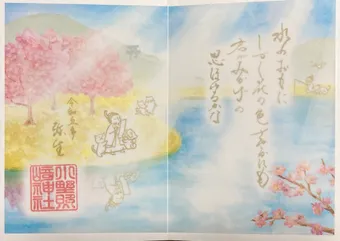 水のおもに
しづく花の色さやかにも
君がみかけの
思ほゆるかな
令和 年
弥生
小野照
崎神社